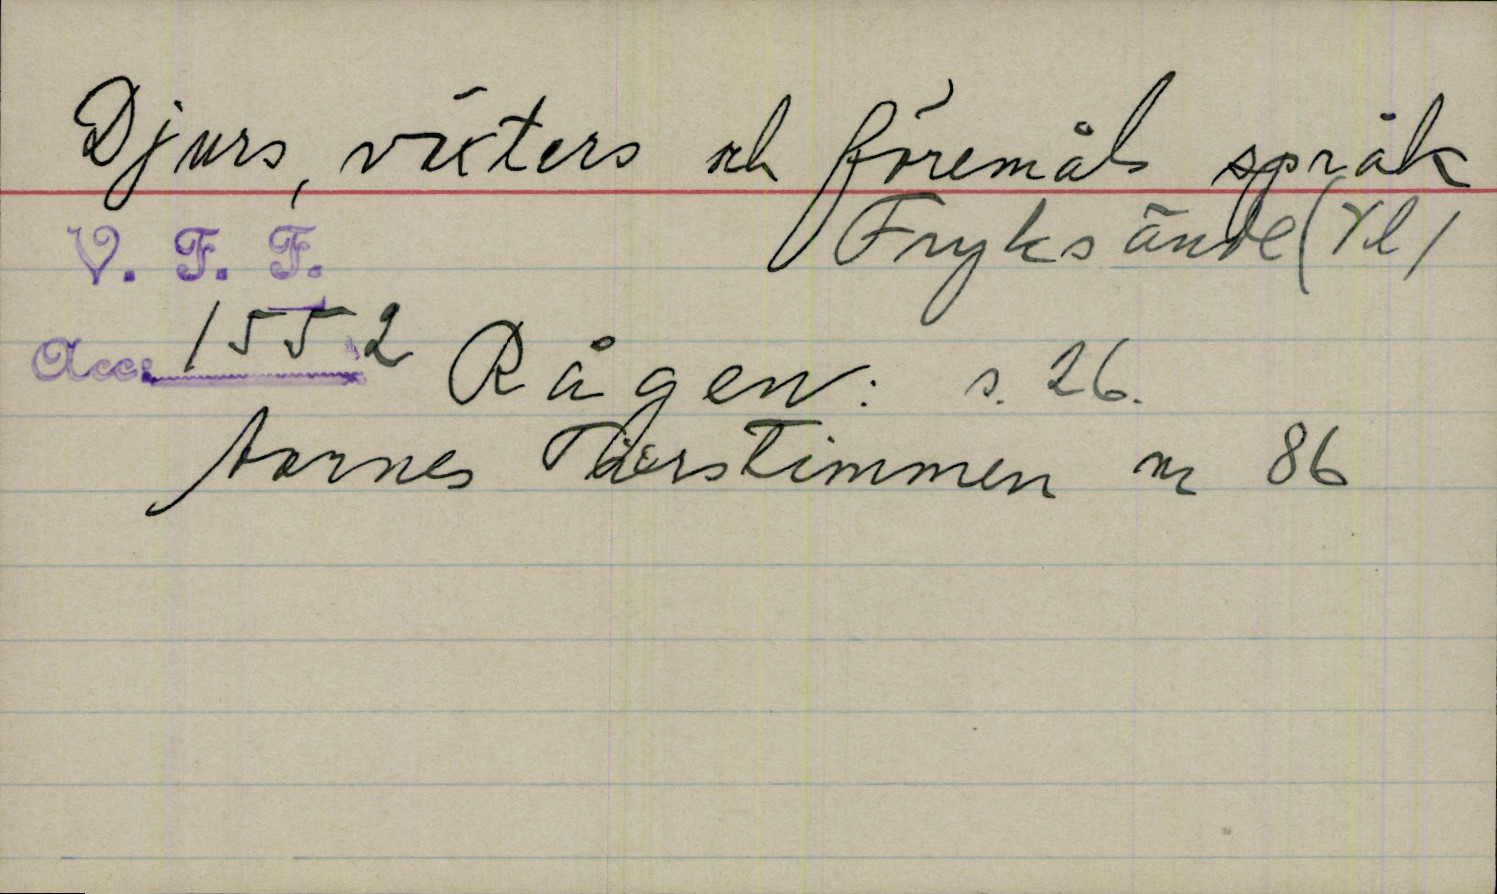 Djurs, växters och föremåls språk
V. F. F. Fryksände (Vl)
Acc. 1552 Rågen: s. 26.
Aarnes Tierstimmen nr 86